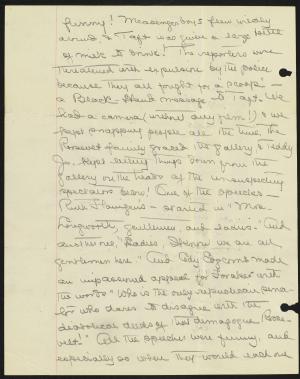 funny! Messenger boys flew wildly
around & Taft was given a large bottle
of milk to drink! The reporters were
threatened with expulsion by the police
because they all fought for a scoop! —
a Black-Hand message to Taft. We
had a camera (without any film!) & we
kept snapping people all the time, the
Roosevelt family graced the gallery & Teddy
Jr. kept letting things down from the
gallery on the heads of the unsuspecting
spectators below! One of the speeches —
Ruth Flanigen's — started in "Mrs.
Longworth, gentlemen, and ladies." And
another one, "Ladies, I know we are all
gentlemen here" And made
an impassioned appeal for Foraker with
the words "Who is the only republican sena-
tor who dares to disagree with the
diabolical deeds of that demagogue Roose-
velt!" All the speeches were funny, and
especially so when they would each one